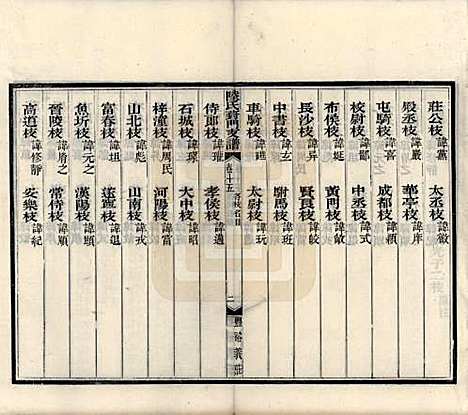 莊公枝 諱黨 太丞枝 諱徽
殿丞枝 諱嚴 華亭枝 諱庠
屯騎枝 諱喜 成都枝 諱穎
校尉枝 諱鄱 中丞枝 諱式
布侯枝 諱誕 黃門枝 諱敞
長沙枝 諱昇 賢良枝 諱皎
中書枝 諱玄 尉馬枝 諱班
車騎枝 諱曄 太尉枝 諱玩
陸氏葑門支譜 卷十五 各枝名目 二 豐裕義莊
侍郎枝 諱瓘 孝侯枝 諱邁
石城枝 大中枝 諱昭
梓潼枝 諱閎氏 河陽枝 諱
山北枝 諱彪 山南枝 諱
富春枝 諱坦 遂寧枝 諱
魚圻枝 諱元之 漢陽枝 諱
晉陵枝 常侍枝 諱
高道枝 諱修靜 安樂枝 諱紀